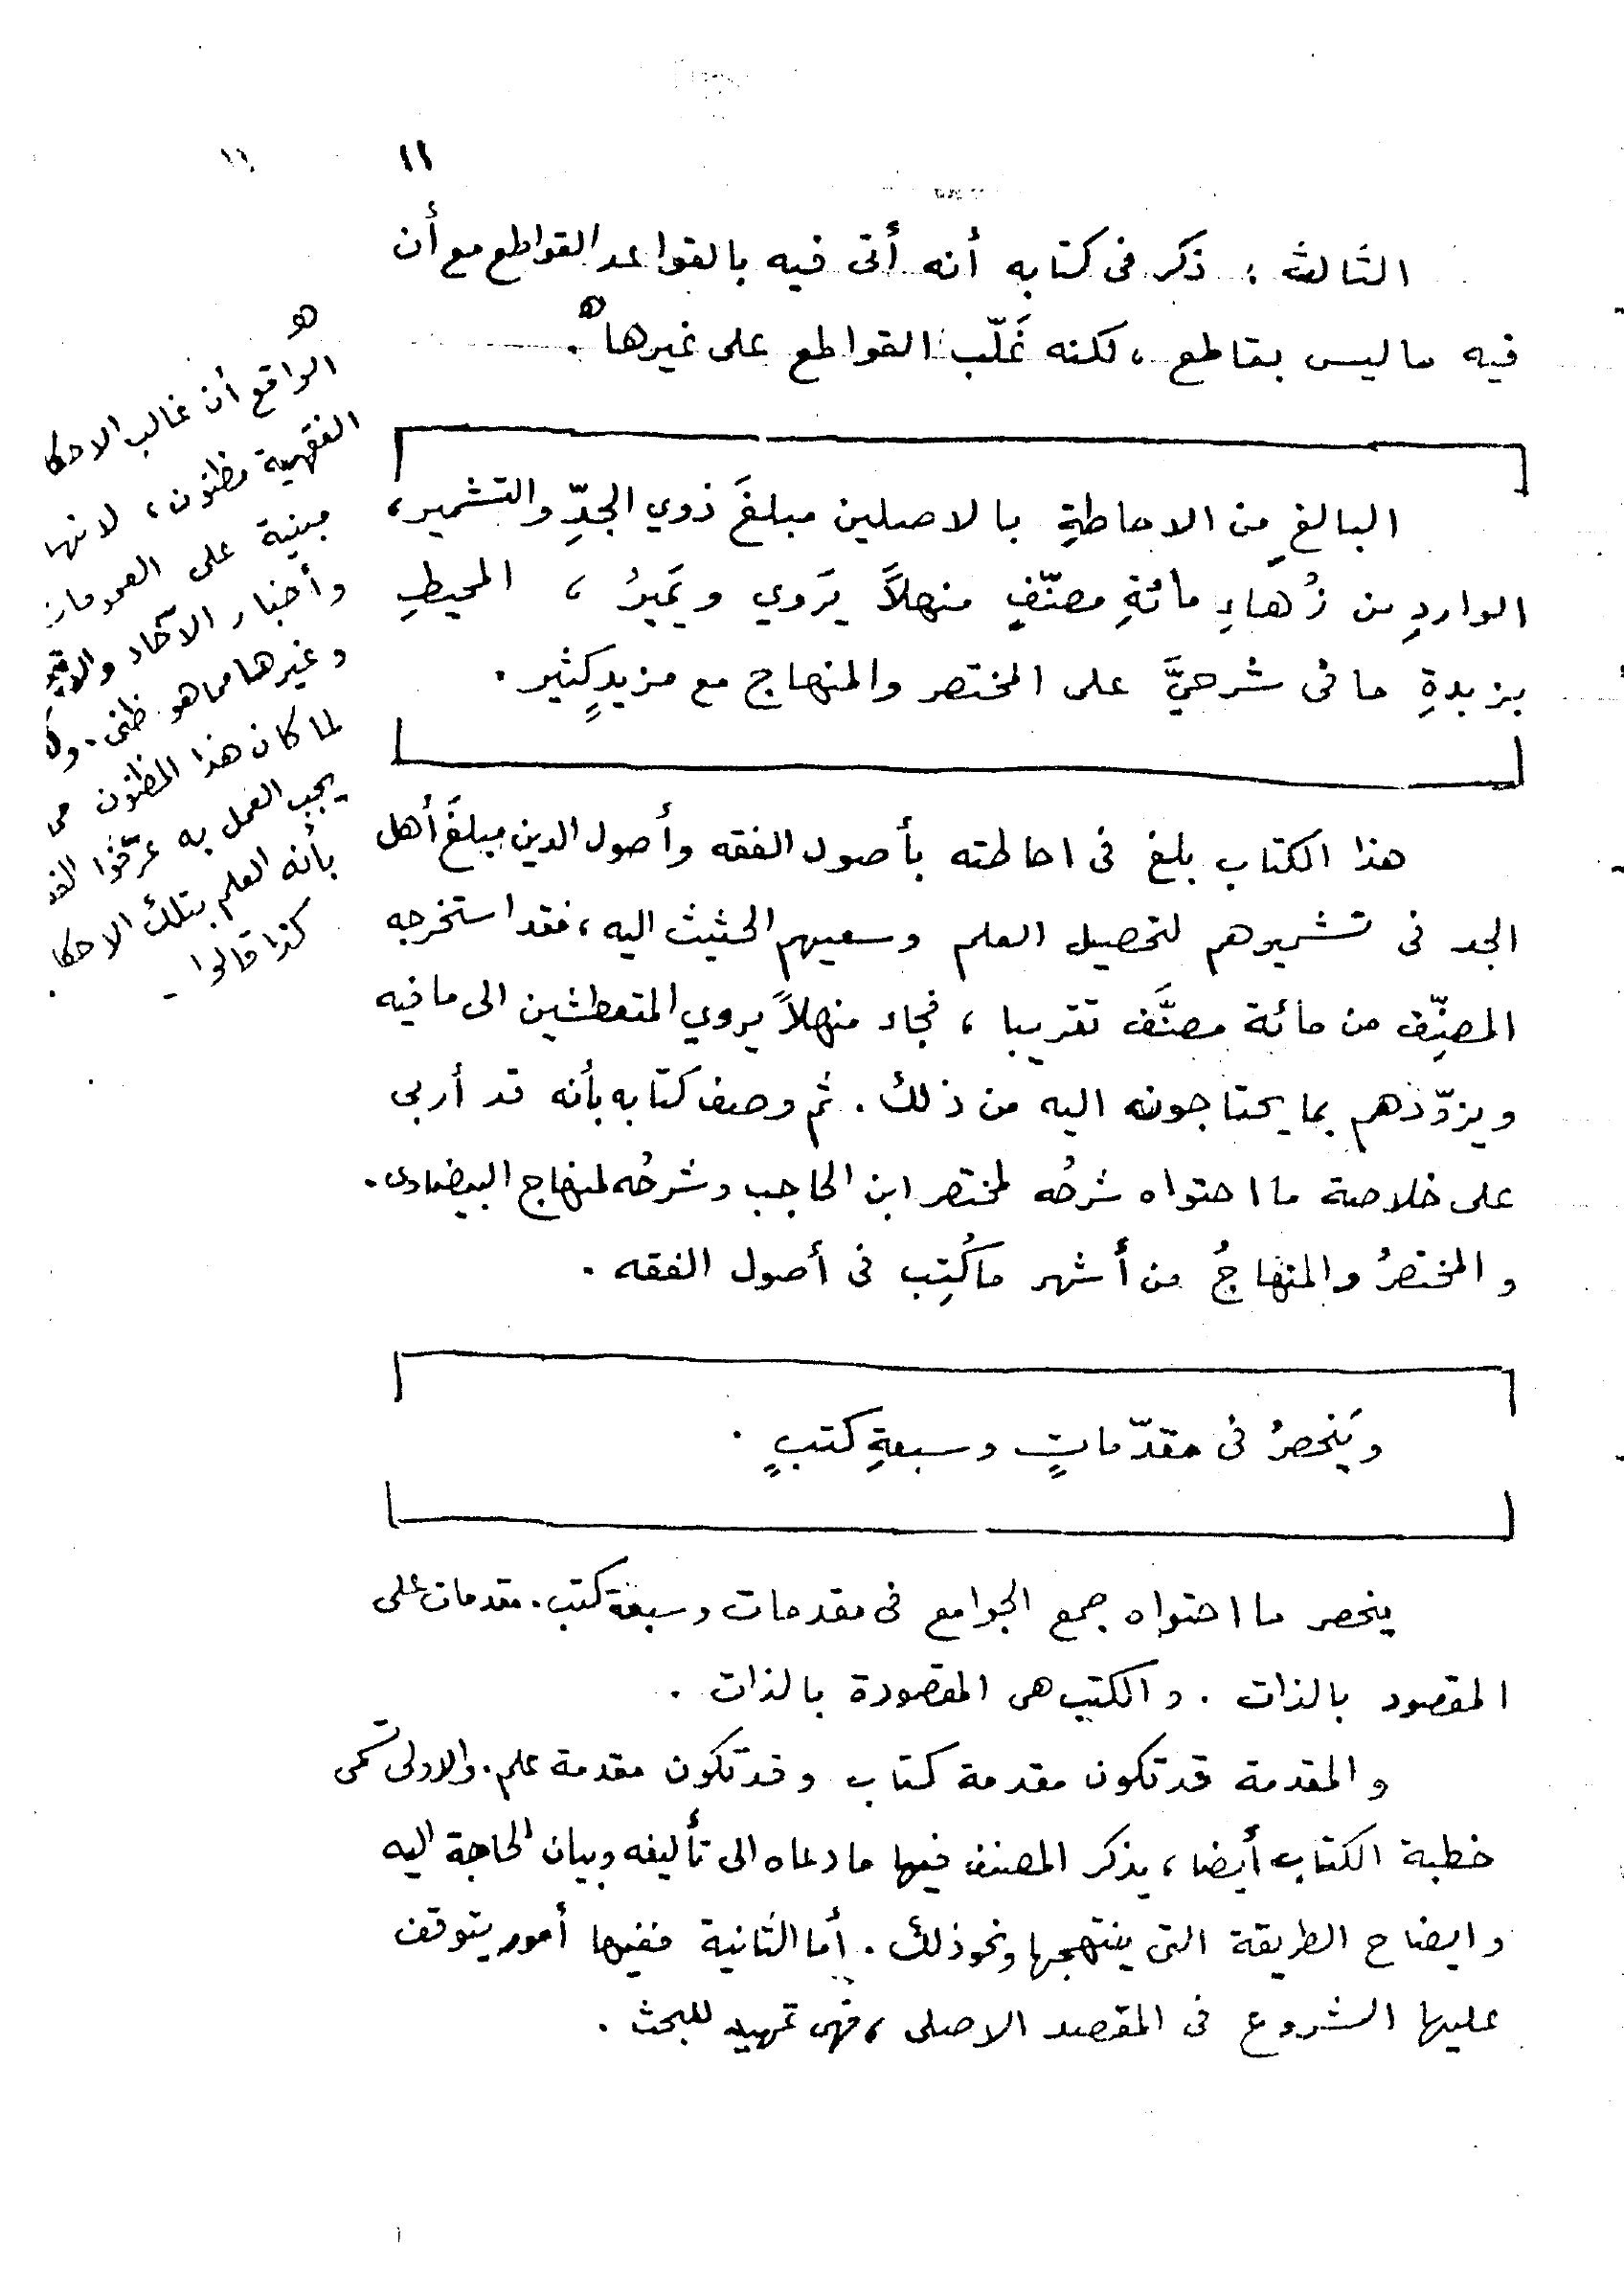 ١١
١١
الثالث : ذكر فى كتابه أنه أتى فيه بالقواعد القواطع مع أن
فيه ما ليس بقاطع ، لكنه غَلّب القواطع على غيرها .
البالغِ من الاحاطةِ بالاصلين مبلغَ ذوي الجدِّ والتشمير ،
الواردِ من زُهاءِ مائةِ مصنّفٍ منهلاً يَروي ويَميرُ ، المحيطِ
بزبدةِ ما فى شرحيَّ على المختصر والمنهاج مع مزيدٍ كثير .
هذا الكتاب بلغ فى احاطته بأصول الفقه وأصول الدين مبلغَ أهل
الجد فى تشميرهم لتحصيل العلم وسعيهم الحثيث اليه ، فقد استخرجه
المصنِّف من مائة مصنَّف تقريبا ، فجاء منهلاً يروي المتعطشين الى ما فيه
ويزوّدهم بما يحتاجونه اليه من ذلك . ثم وصف كتابه بأنه قد أربى
على خلاصة ما احتواه شرحُه لمختصر ابن الحاجب وشرحُه لمنهاج البيضاوى .
والمختصرُ والمنهاجُ من أشهر ما كُتِب فى أصول الفقه .
ويَنحصرُ فى مقدّماتٍ وسبعةِ كتبٍ .
ينحصر ما احتواه جمع الجوامع فى مقدمات وسبعة كتب . مقدمات على
المقصود بالذات . والكتب هى المقصودة بالذات .
والمقدمة قد تكون مقدمة كتاب وقد تكون مقدمة علم . والاولى تسمى
خطبة الكتاب أيضا ، يذكر المصنف فيها ما دعاه الى تأليفه وبيان الحاجة اليه
وايضاح الطريقة التى ينتهجها ونحو ذلك . أما الثانية ففيها أمور يتوقف
عليها الشروع فى المقصد الاصلى ، فهى تمهيد للبحث .
الواقع أن غالب الاحكا
الفقهية مظنون ، لانها
مبنية على العمومات
وأخبار الآحاد
وغيرها مما هو ظنى .
لما كان هذا المظنون
يجب العمل به عرّفوا
بأنه العلم بتلك الاحكا
كذا قالوا -